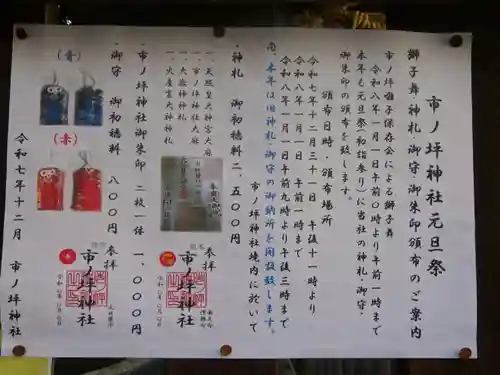 市ノ坪神社元旦祭
獅子舞神札・御守・御朱印頒布のご案内
市ノ坪囃子保存会による獅子舞
令和八年一月一日午前０時より午前一時まで
本年も元旦祭(初詣参り)に当社の神札・御守・
御朱印の頒布を致します。
頒布日時・頒布場所
令和七年十二月三十一日 午後十一時より
令和八年一月一日 午前一時まで
令和八年一月一日午前九時より午後三時まで
尚、本年は旧神札・御守の御納所を開設致します。
市ノ坪神社境内に於いて
・神札 御初穂料 二、五００円
一、天照皇大神宮大麻
一、市ノ坪神社大麻
一、大歳神神札
一、火産霊大神神札
・市ノ坪神社御朱印 二枚一体 一、０００円
・御守 御初穂料 八００円
(青)
(赤)
参拝
市ノ坪神社
参拝
市ノ坪神社
令和七年十二月 市ノ坪神社